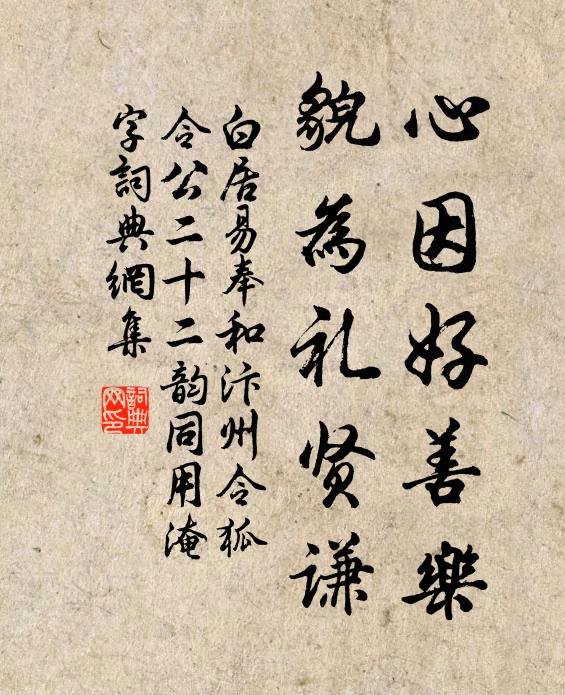 心因好善樂
貌為礼贤謙
白居易奉和汴州令狐
令公二十二韵同用淹
字詞典網集
詞典网印